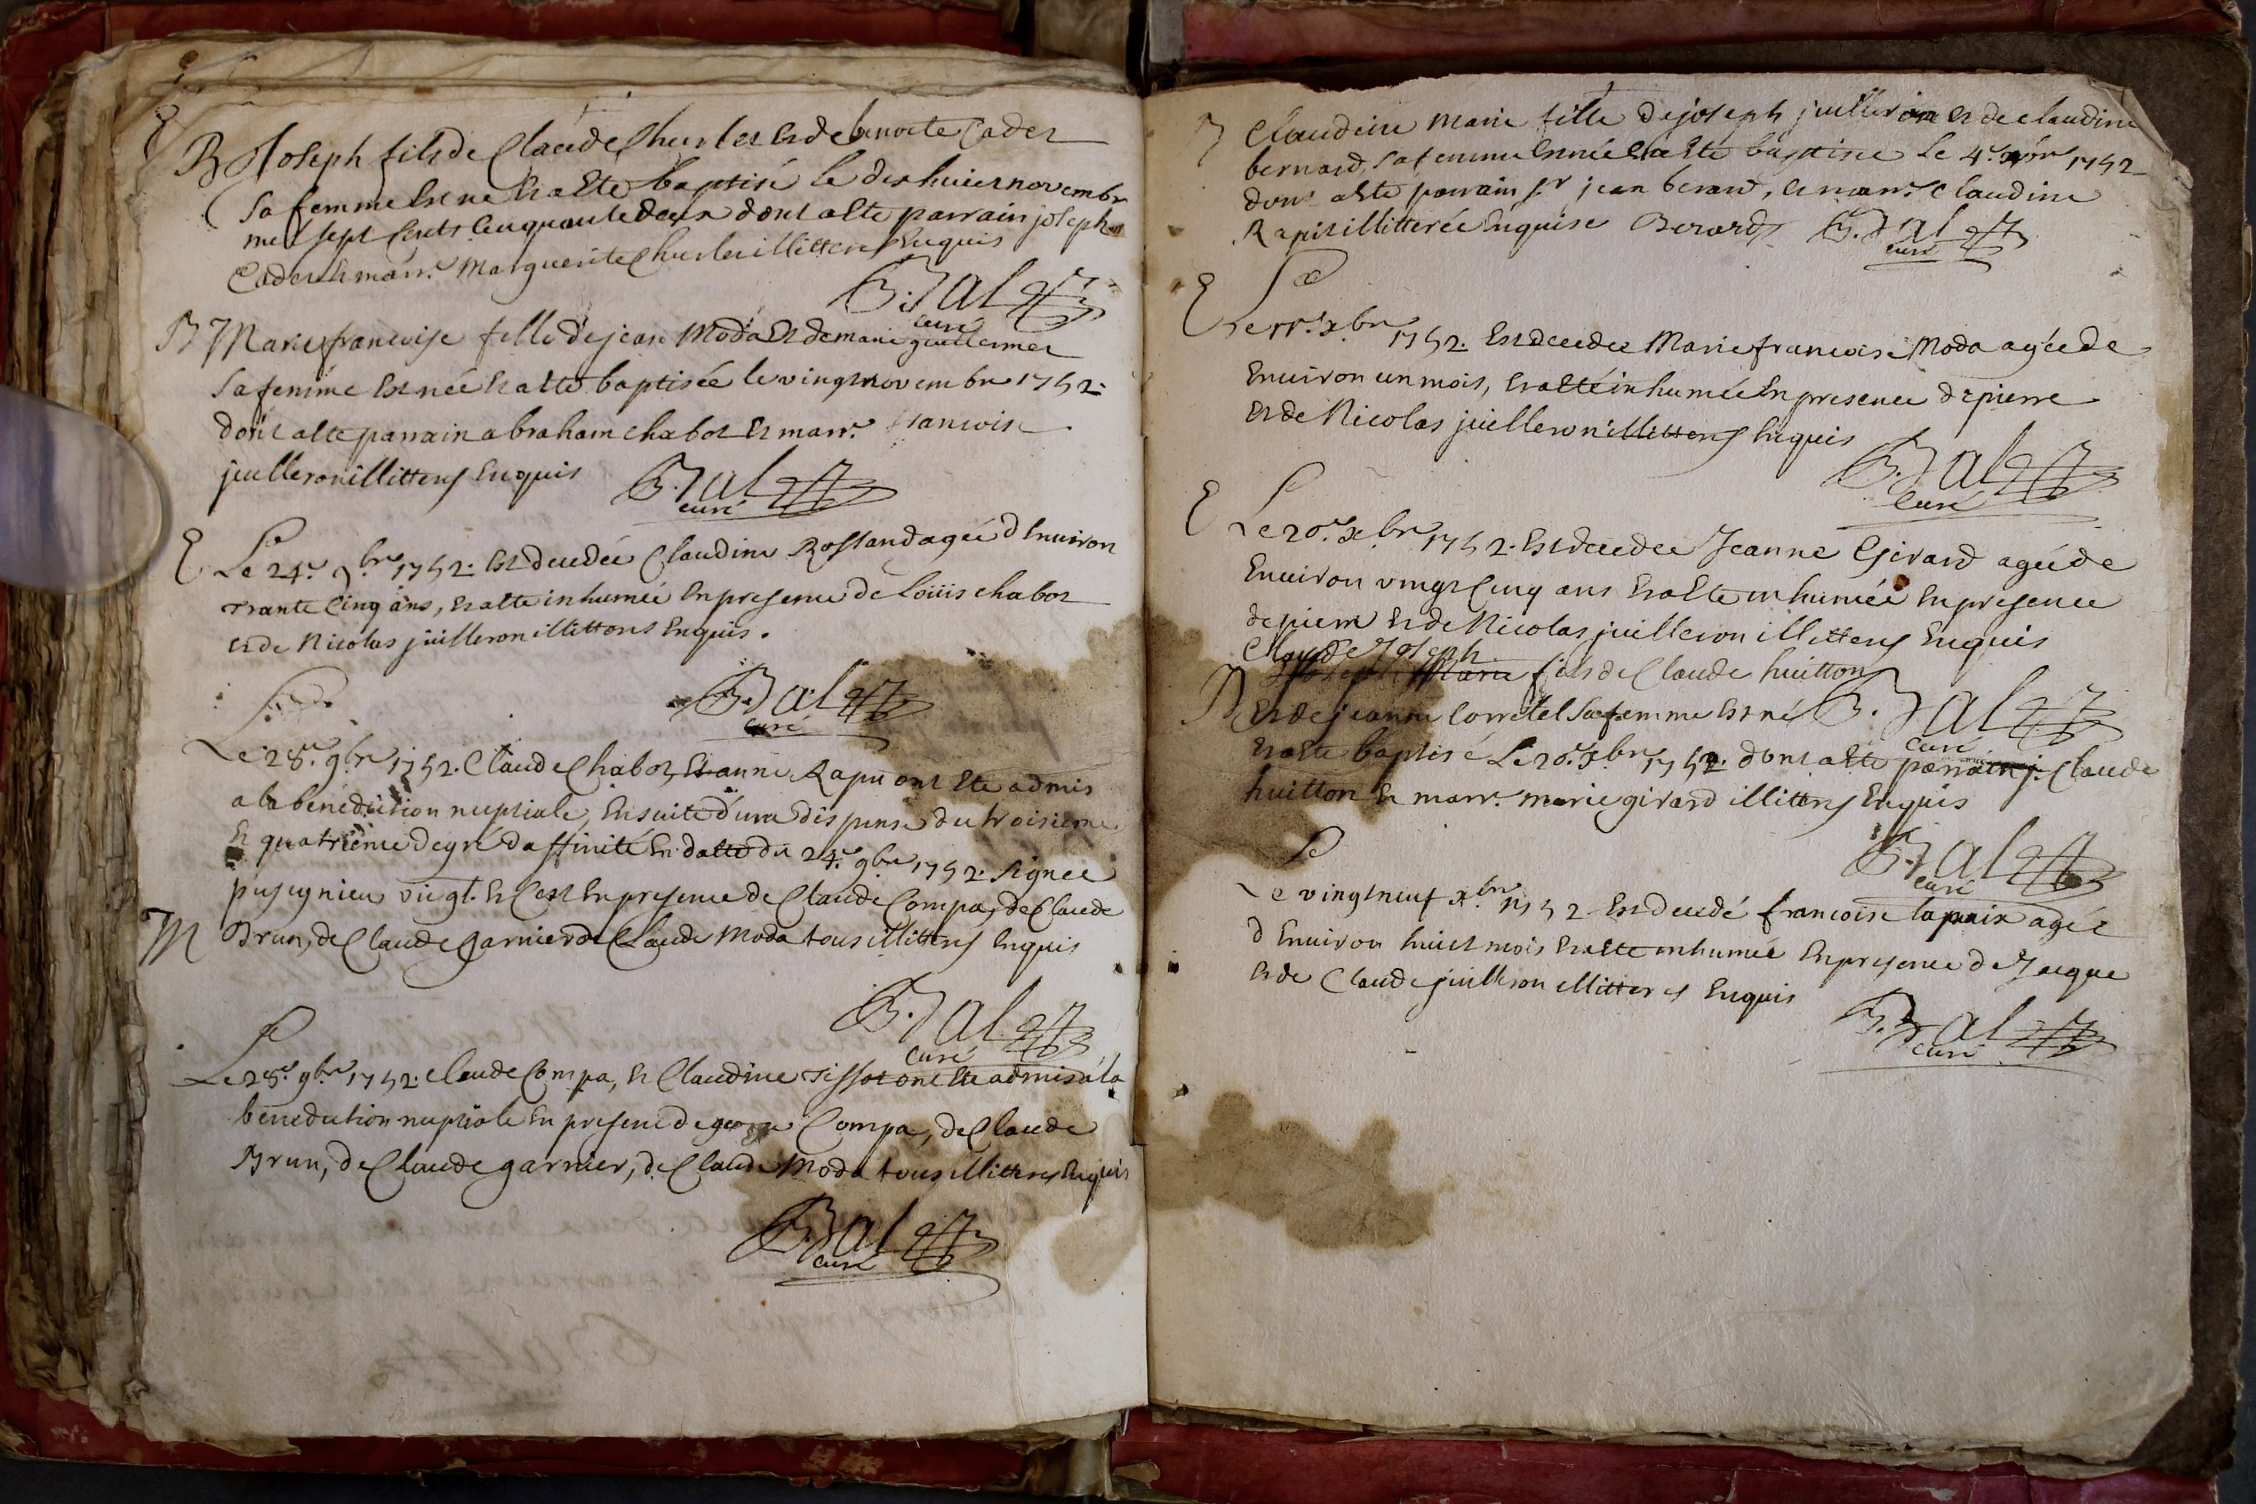 B Joseph fils de Claude Churlet et de benoite Cadet
sa femme est né et a ete baptisé le dix huict novembre
mil sept cents cinquante deux dont a ete parrain joseph
Cadet et marr.e Marguerite Churlet illitterés enquis
B. Balet
curé
B Marie francoise fille de jean Moda et de marie guillermet
sa femme est née et a ete baptisée le vingt novembre 1752.
dont a ete parrain abraham chabot et marr.e francoise
juilleron illitterés enquis B. Balet
curé
E Le 24.e 9.bre 1752. est decedée Claudine Rossand agée d'environ
trante cinq ans, et a ete inhumée en presence de Loüis chabot
et de Nicolas juilleron illitterés enquis.
B. Balet
curé
Le 28.e 9.bre 1752. Claude Chabot, et anne Rapit ont ete admis
a la benediction nuptiale, ensuite d'une dispense du troisieme
et quatrieme degré d'affinité en datte du 24.e 9.bre 1752. signee
pusignieu vic gl. et c'est en presence de Claude Compa, de Claude
M Brun, de Claude garnier et de Claude Moda tous illitterés enquis
B. Balet
curé
Le 28.e 9.bre 1752. Claude Compa, et Claudine Tissot ont ete admis a la
benediction nuptiale en presence de george Compa, de Claude
Brun, de Claude garnier, de Claude Moda tous illitterés enquis
B. Balet
curé
B Claudine Marie fille de joseph juilleron et de claudine
bernard, sa femme est née et a ete baptisée le 4.e xbre 1752
dont a ete parrain s.r jean berard, et marr.e Claudine
Rapit illitterée enquise Berard B. Balet
curé
E Le 11.e x.bre 1752. est decedee Marie francoise Moda agée de
environ un mois, et a eté inhumée en presence de pierre
et de Nicolas juilleron illitterés enquis
B. Balet
curé
E Le 20.e x.bre 1752. est decedee Jeanne Girard agée de
environ vingt cinq ans et a ete inhumée en presence
de pierre et de Nicolas juilleron illitterés enquis
Claude Joseph
B Joseph Marie fils de Claude huitton B. Balet
et de jeanne Corretel sa femme est né curé
et a ete baptisé Le 20.e x.bre 1752. dont a ete parrain j. Claude
huitton et marr.e marie girard illitterés enquis
B. Balet
curé
Le vingt neuf x.bre 1752 est decedé francoise lapaix agée
d'environ huict mois et a ete inhumée en presence de Jacque
et de Claude juilleron illitterés enquis
B. Balet
curé